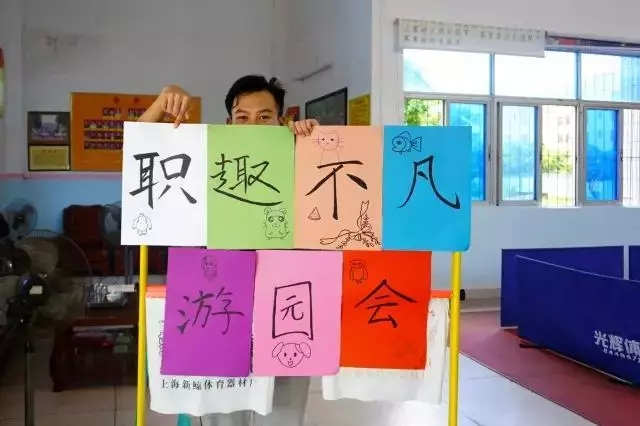 职趣不凡
游园会
上海新鲸体育器材厂
光辉体